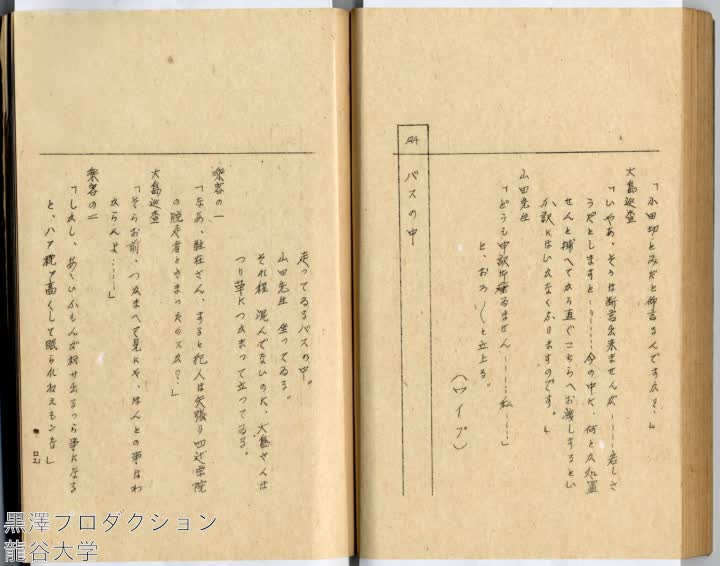 「小田切とみだと仰言るんですか？」
大島巡査
「いやあ、そうは断言出来ませんが……若しさ
うだとしますと……今の中に、何とか処置
せんと捕へてから直ぐこちらへお渡しするとい
ふ訳にはいかなくなりますのです。」
山田先生
「どうも申訳御座ゐません……私……」
と、おろ〱と立上る。
（ワイプ）
バスの中
走ってゐるバスの中。
山田先生 坐ってゐる。
それ程 混んでないのに、大島さんは
つり革につかまって立つてゐる。
乗客の一
「なあ、駐在さん、すると犯人は矢張り四辻学院
の脱走者ときまったのスか？」
大島巡査
「そらお前、つかまへて見にや、ほんとの事はわ
からんよ……」
乗客の二
「しかし、あゝいふもんが村サ出るつう事になる
と、ハア枕ァ高くして眠られねえもンな」
黒澤プロダクション
龍谷大学